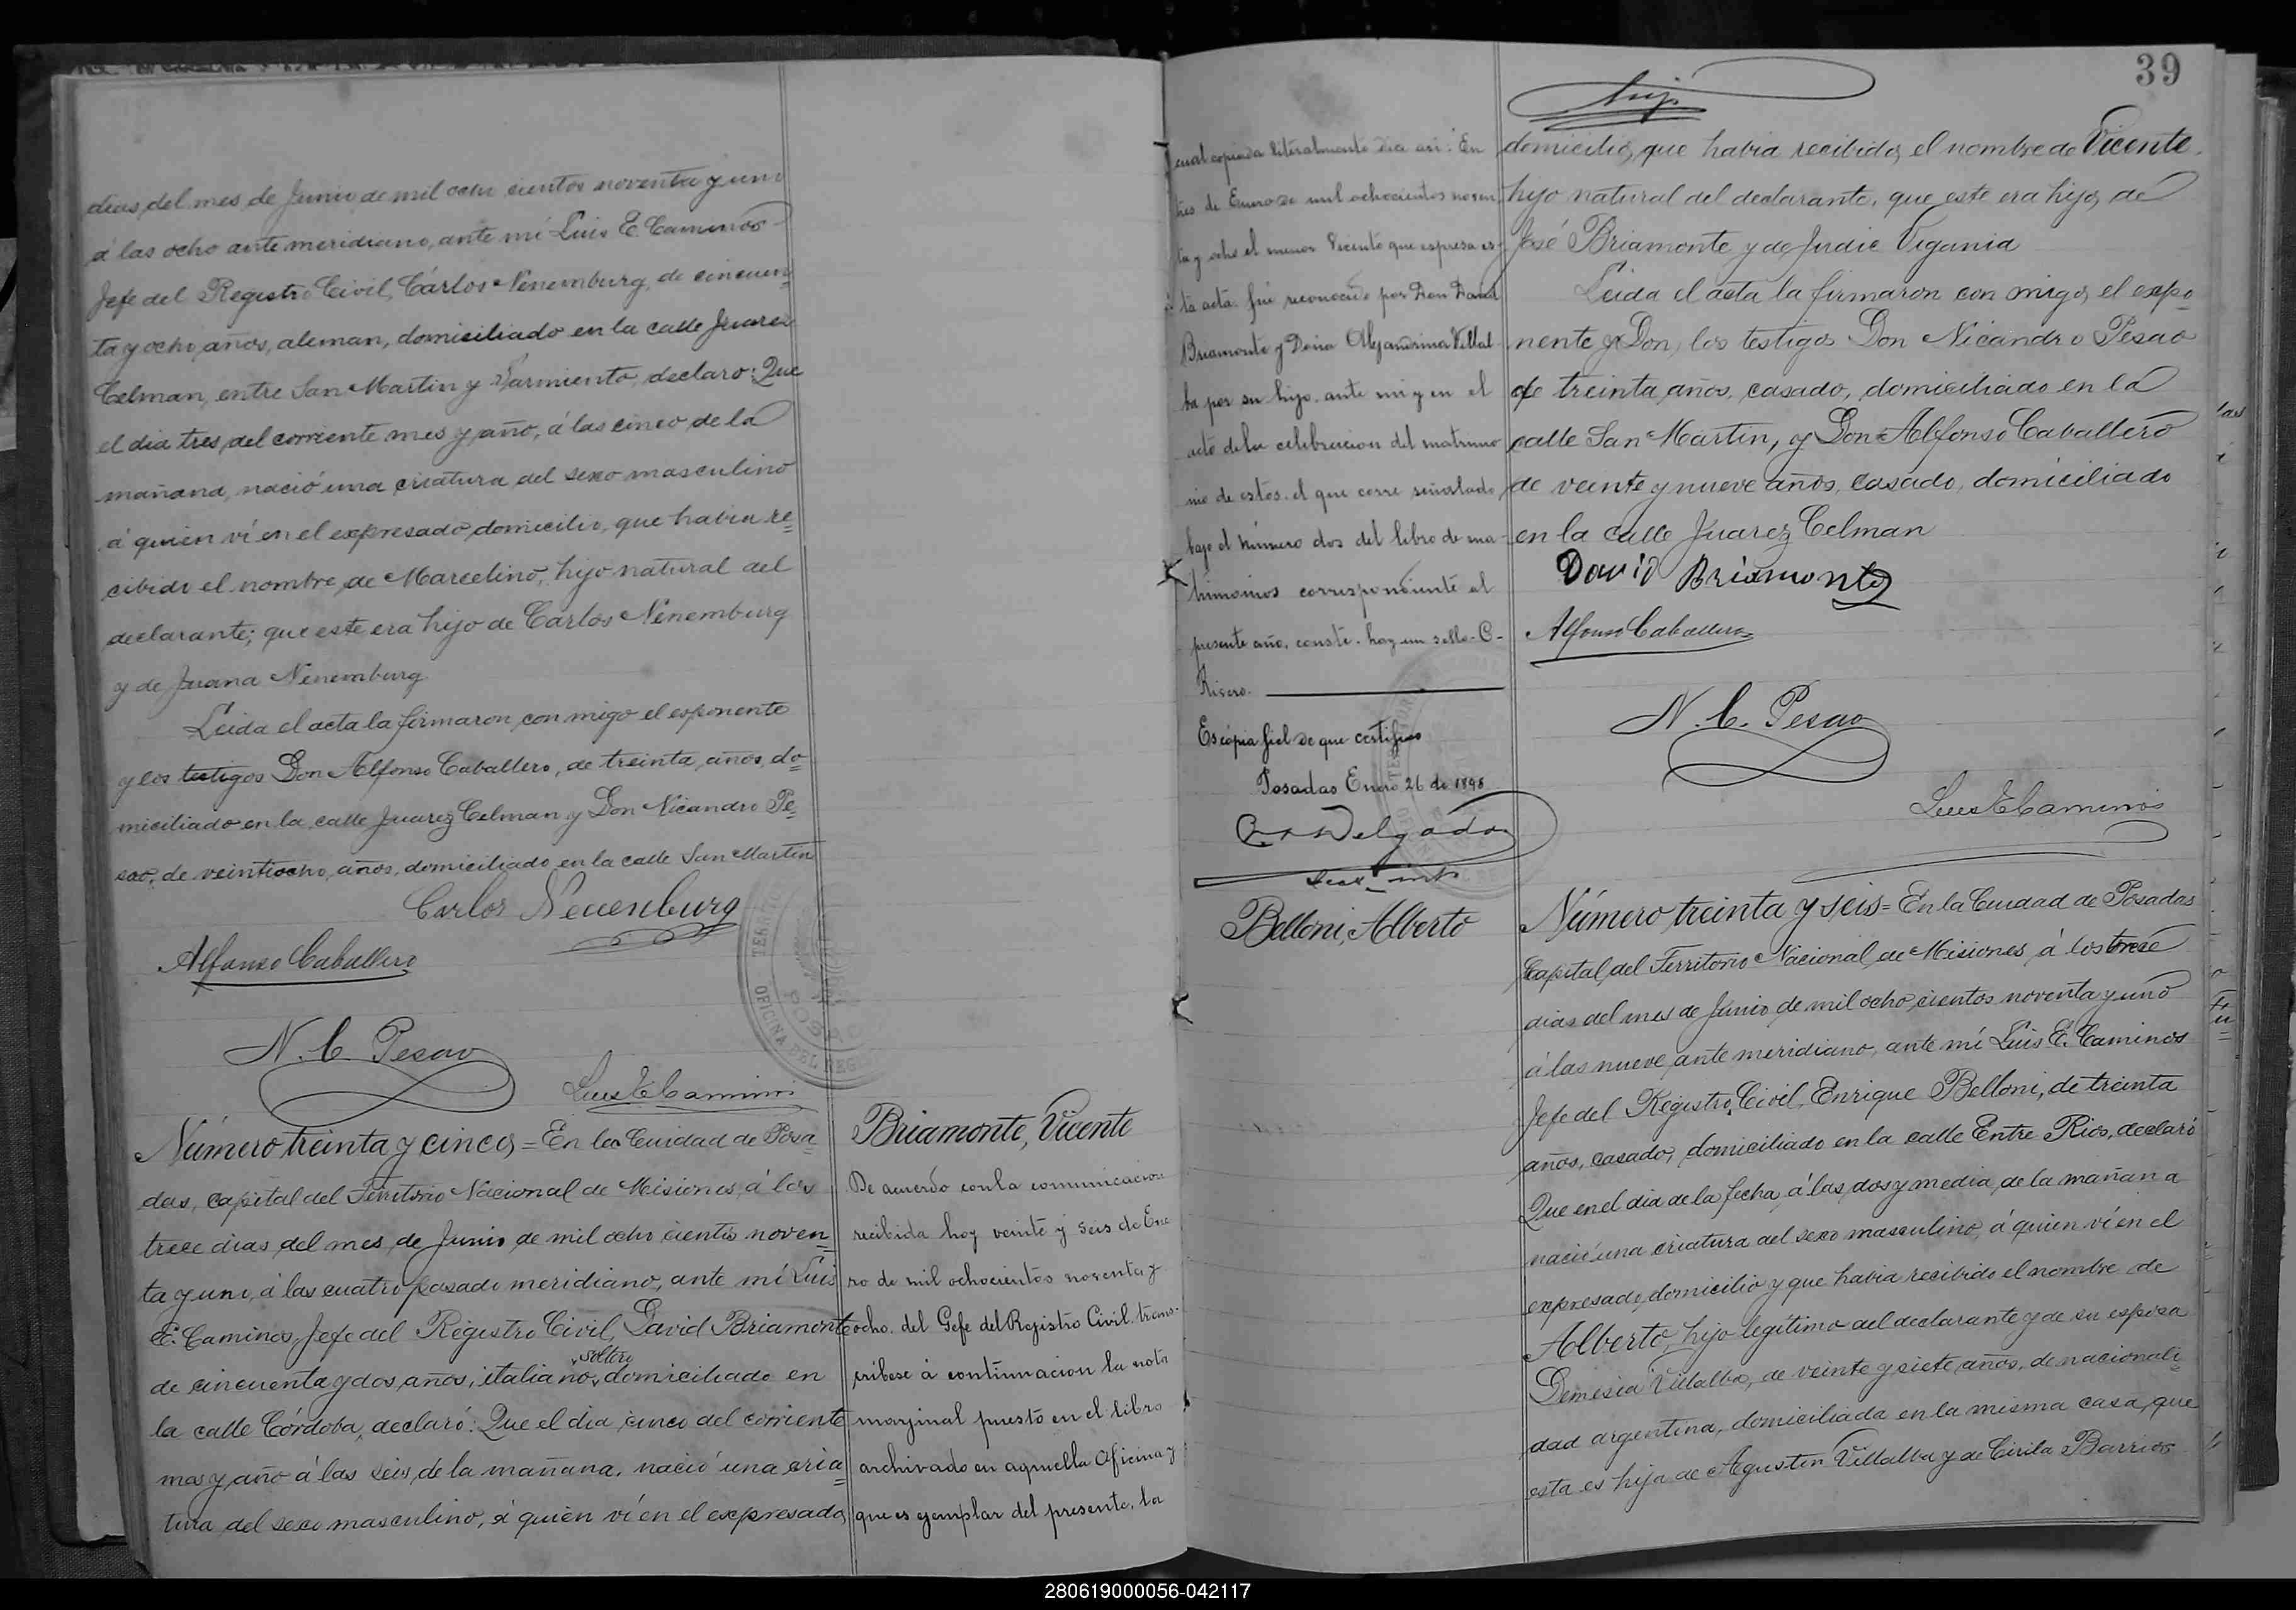 dias del mes de Junio de mil ocho cientos noventa y uno
á las ocho ante meridiano, ante mi Luis E. Caminos
Jefe del Registro Civil, Cárlos Nenemburg, de cincuen=
ta y ocho años, aleman, domiciliado en la calle Juarez
Celman, entre San Martin y Sarmiento, declaro: Que
el dia tres del corriente mes y año, á las cinco de la
mañana, nació una criatura del sexo masculino
á quien ví en el expresado domicilio, que habia re=
cibido el nombre de Marcelino, hijo natural del
declarante; que este era hijo de Carlos Nenemburg
y de Juana Nenemburg.
Leida el acta la firmaron con migo el esponente
y los testigos Don Alfonso Caballero, de treinta años, do=
miciliado en la calle Juarez Celman y Don Nicandro Pe=
sao, de veintiocho años, domiciliado en la calle San Martin
Carlos Neuenburg
Alfonso Caballero
N. C. Pesao
Luis E Caminos
OFICINA DEL REG
Número treinta y cinco = En la Ciudad de Posa
das, capital del Territorio Nacional de Misiones, á los
trece dias del mes de Junio de mil ocho cientos noven=
ta y uno, á las cuatro pasado meridiano, ante mí Luis
E. Caminos, Jefe del Registro Civil, David Briamonte
soltero
de cincuenta y dos años, italiano, domiciliado en
la calle Córdoba, declaró: Que el dia cinco del corriente
mes y año á las seis de la mañana, nació una cria=
tura del sexo masculino, á quien ví en el expresado
Briamonte, Vicente
De acuerdo con la comunicacion
recibida hoy veinte y seis de Ene
ro de mil ochocientos noventa y
ocho. del Gefe del Registro Civil. trans-
cribese á continuacion la nota
marginal puesto en el libro
archivado en aquella Oficina y
que es ejemplar del presente, la
cual copiada literalmente dice así: En
tres de Enero de mil ochocientos noven
ta y ocho el menor Vicente que espresa es-
ta acta. fué reconocido por Don David
Briamonte y Doña Alejandrina Villal-
ba por su hijo. ante mi y en el
acto de la celebracion del matrimo
nio de estos. el que corre señalado
bajo el número dos del libro de ma-
trimonios correspondiente al
presente año, conste. hay un sello. C-
Rivero.
Es copia fiel de que certifico
Posadas Enero 26 de 1898
Delgado
Secr. int
Belloni, Alberto
39
domicilio, que habia recibido, el nombre de Vicente.
hijo natural del declarante, que este era hijo, de
José Briamonte y de Judic Vigania
Leida el acta la firmaron con migo, el expo=
nente y Don, los testigos Don Nicandro Pesao
de treinta años, casado, domiciliado en la
calle San Martin, y Don Alfonso Caballero
de veinte y nueve años, casado, domiciliado
en la calle Juarez Celman
David Briamonte
Alfonso Caballero
N. C. Pesao
Luis E Caminos
Número treinta y seis = En la Ciudad de Posadas
Capital del Territorio Nacional de Misiones, á los trece
dias del mes de Junio de mil ocho cientos noventa y uno
á las nueve ante meridiano, ante mí Luis E. Caminos
Jefe del Registro Civil, Enrique Belloni, de treinta
años, casado, domiciliado en la calle Entre Rios, declaró
Que en el dia de la fecha, á las dos y media de la mañana
nació una criatura del sexo masculino, á quien ví en el
expresado domicilio y que habia recibido el nombre de
Alberto, hijo legítimo del declarante y de su esposa
Demesia Villalba, de veinte y siete años, de nacionali=
dad argentina, domiciliada en la misma casa, que
esta es hija de Agustin Villalba y de Cirila Barrios
280619000056-042117